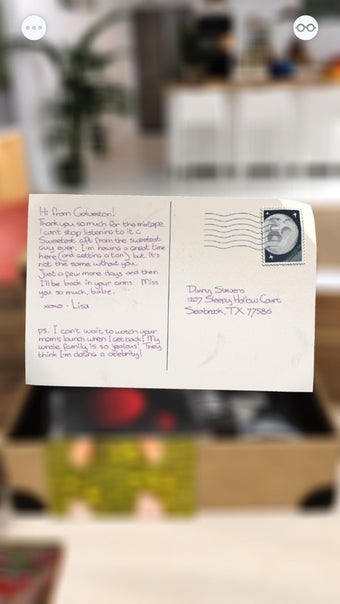 Hi from Galveston!
Thank you so much for the mixtape.
I can't stop listening to it :)
Sweetest gift from the sweetest
guy ever. I'm having a great time
here (and getting a tan!), but it's
not the same without you.
Just a few more days and then
I'll be back in your arms. Miss
you so much, babe.
xoxo - Lisa
ps. I can't wait to watch your
mom's launch when I get back! My
whole family is so jealous! They
think I'm dating a celebrity!
Danny Stevens
1207 Sleepy Hollow Court
Seabrook, TX 77586